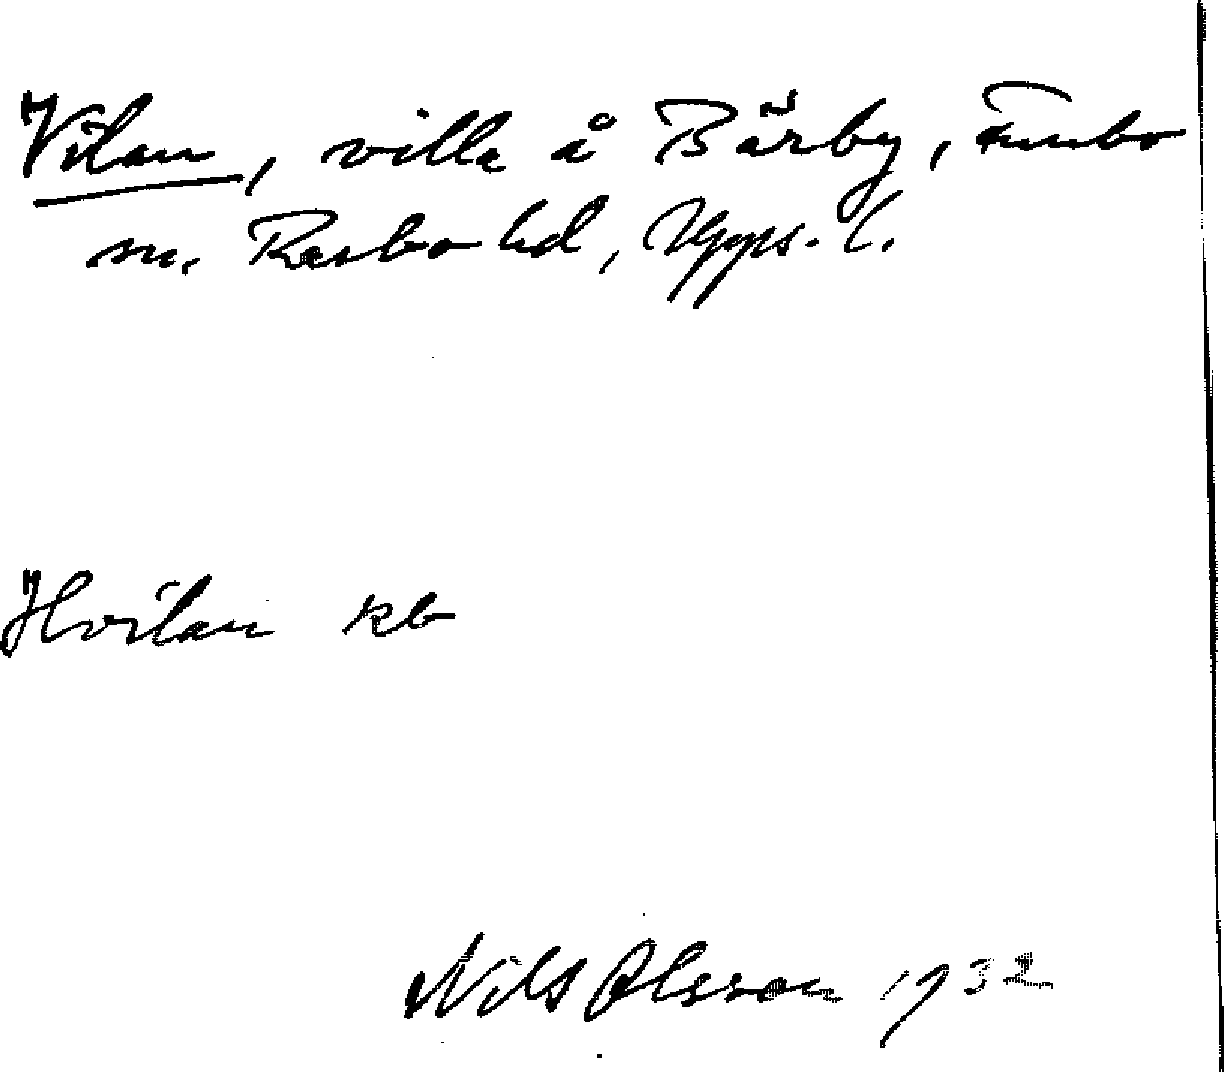 Vilan, villa å Bärby, Funbo
sn. Rasbo hd, Upps. l.
Hvilan kb
Nils Olsson 1932